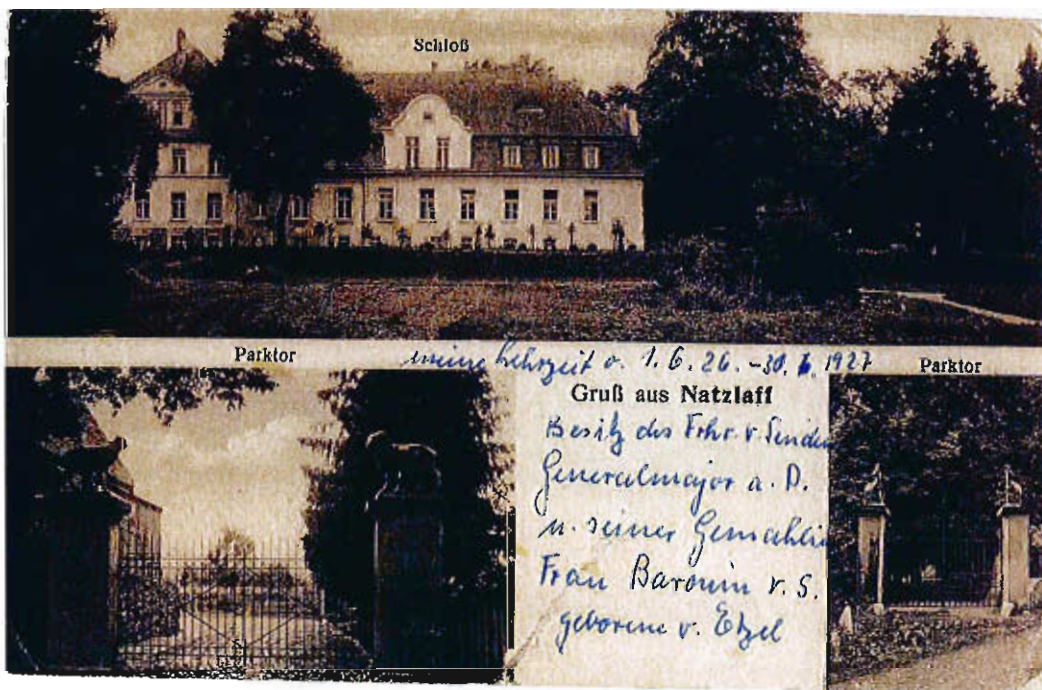 Schloß
Parktor
meine Lehrzeit v. 1.6.26.-30.6.1927
Parktor
Gruß aus Natzlaff
Besitz des Frhr. v. Senden
Generalmajor a. D.
u. seiner Gemahlin
Frau Baronin v. S.
geborene v. Etzel